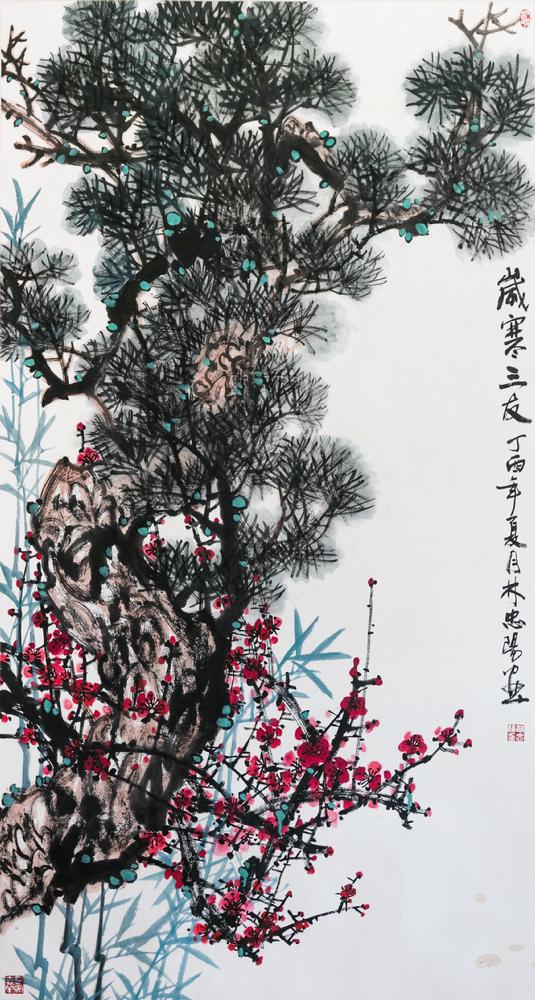 歲寒三友 丁酉年夏月林忠陽畫